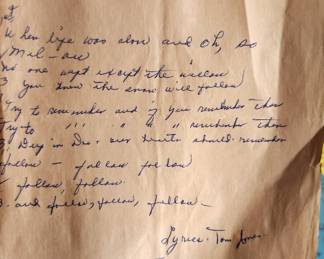 When life was slow and oh, so
Mel-ow
no one wept except the willow
3 you know the snow will follow
Try to remember and if you remember then
Try to " " " " " remember then
3. Deep in Dec. our hearts should remember
follow - follow follow
follow, follow
3. and follow, follow, follow -
Lyrics. Tom Jones